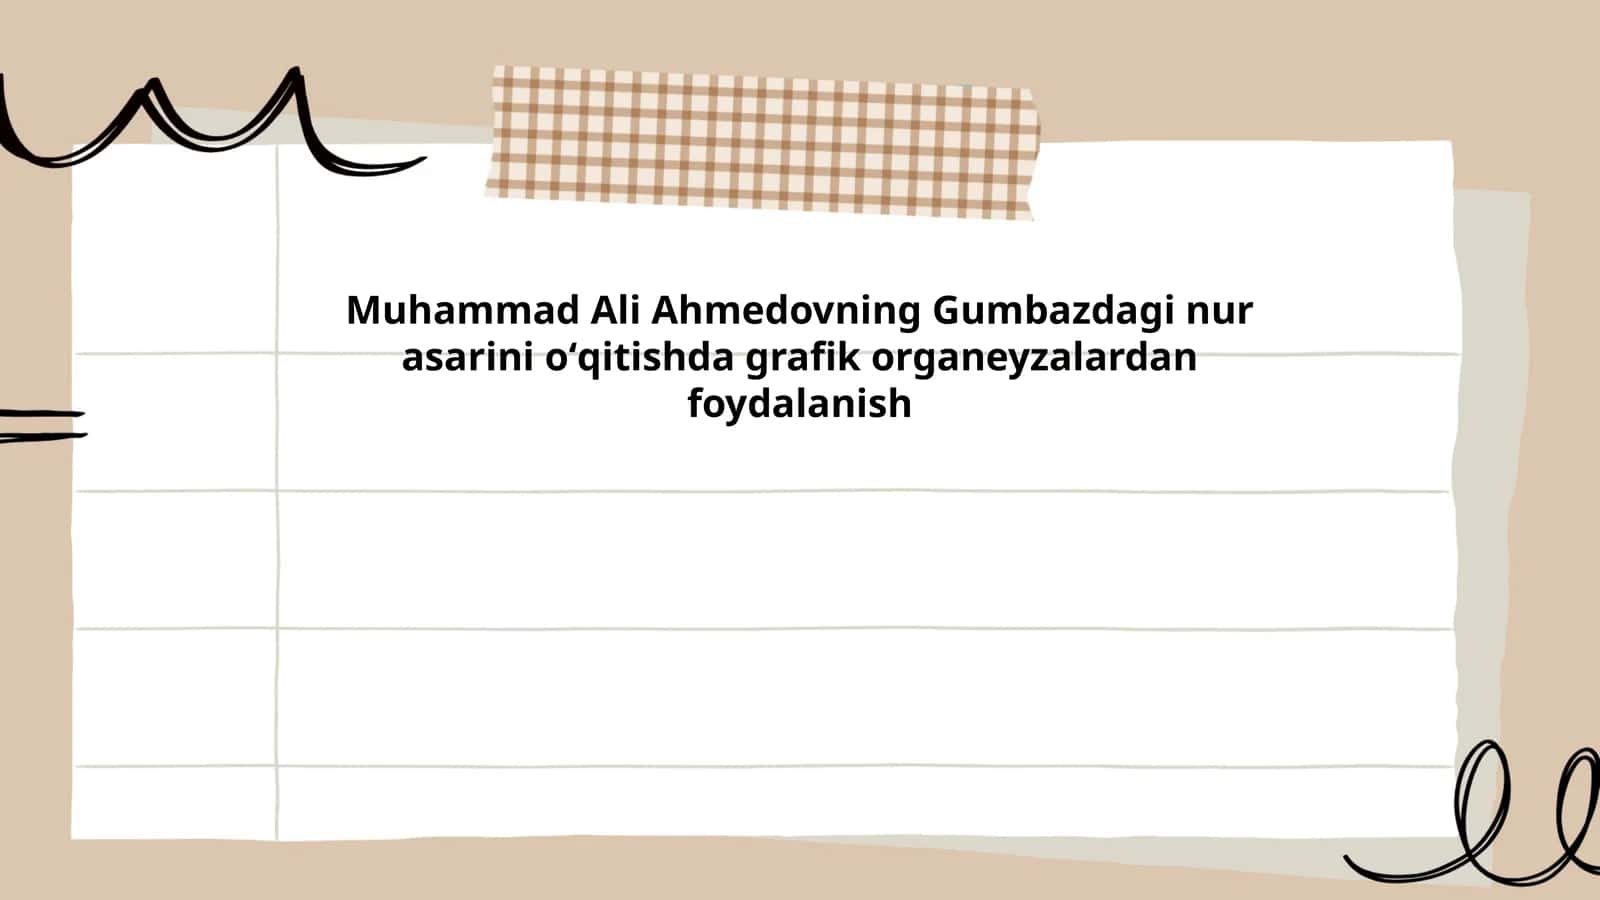 Muhammad Ali Ahmedovning Gumbazdagi nur
asarini o‘qitishda grafik organeyzalardan
foydalanish